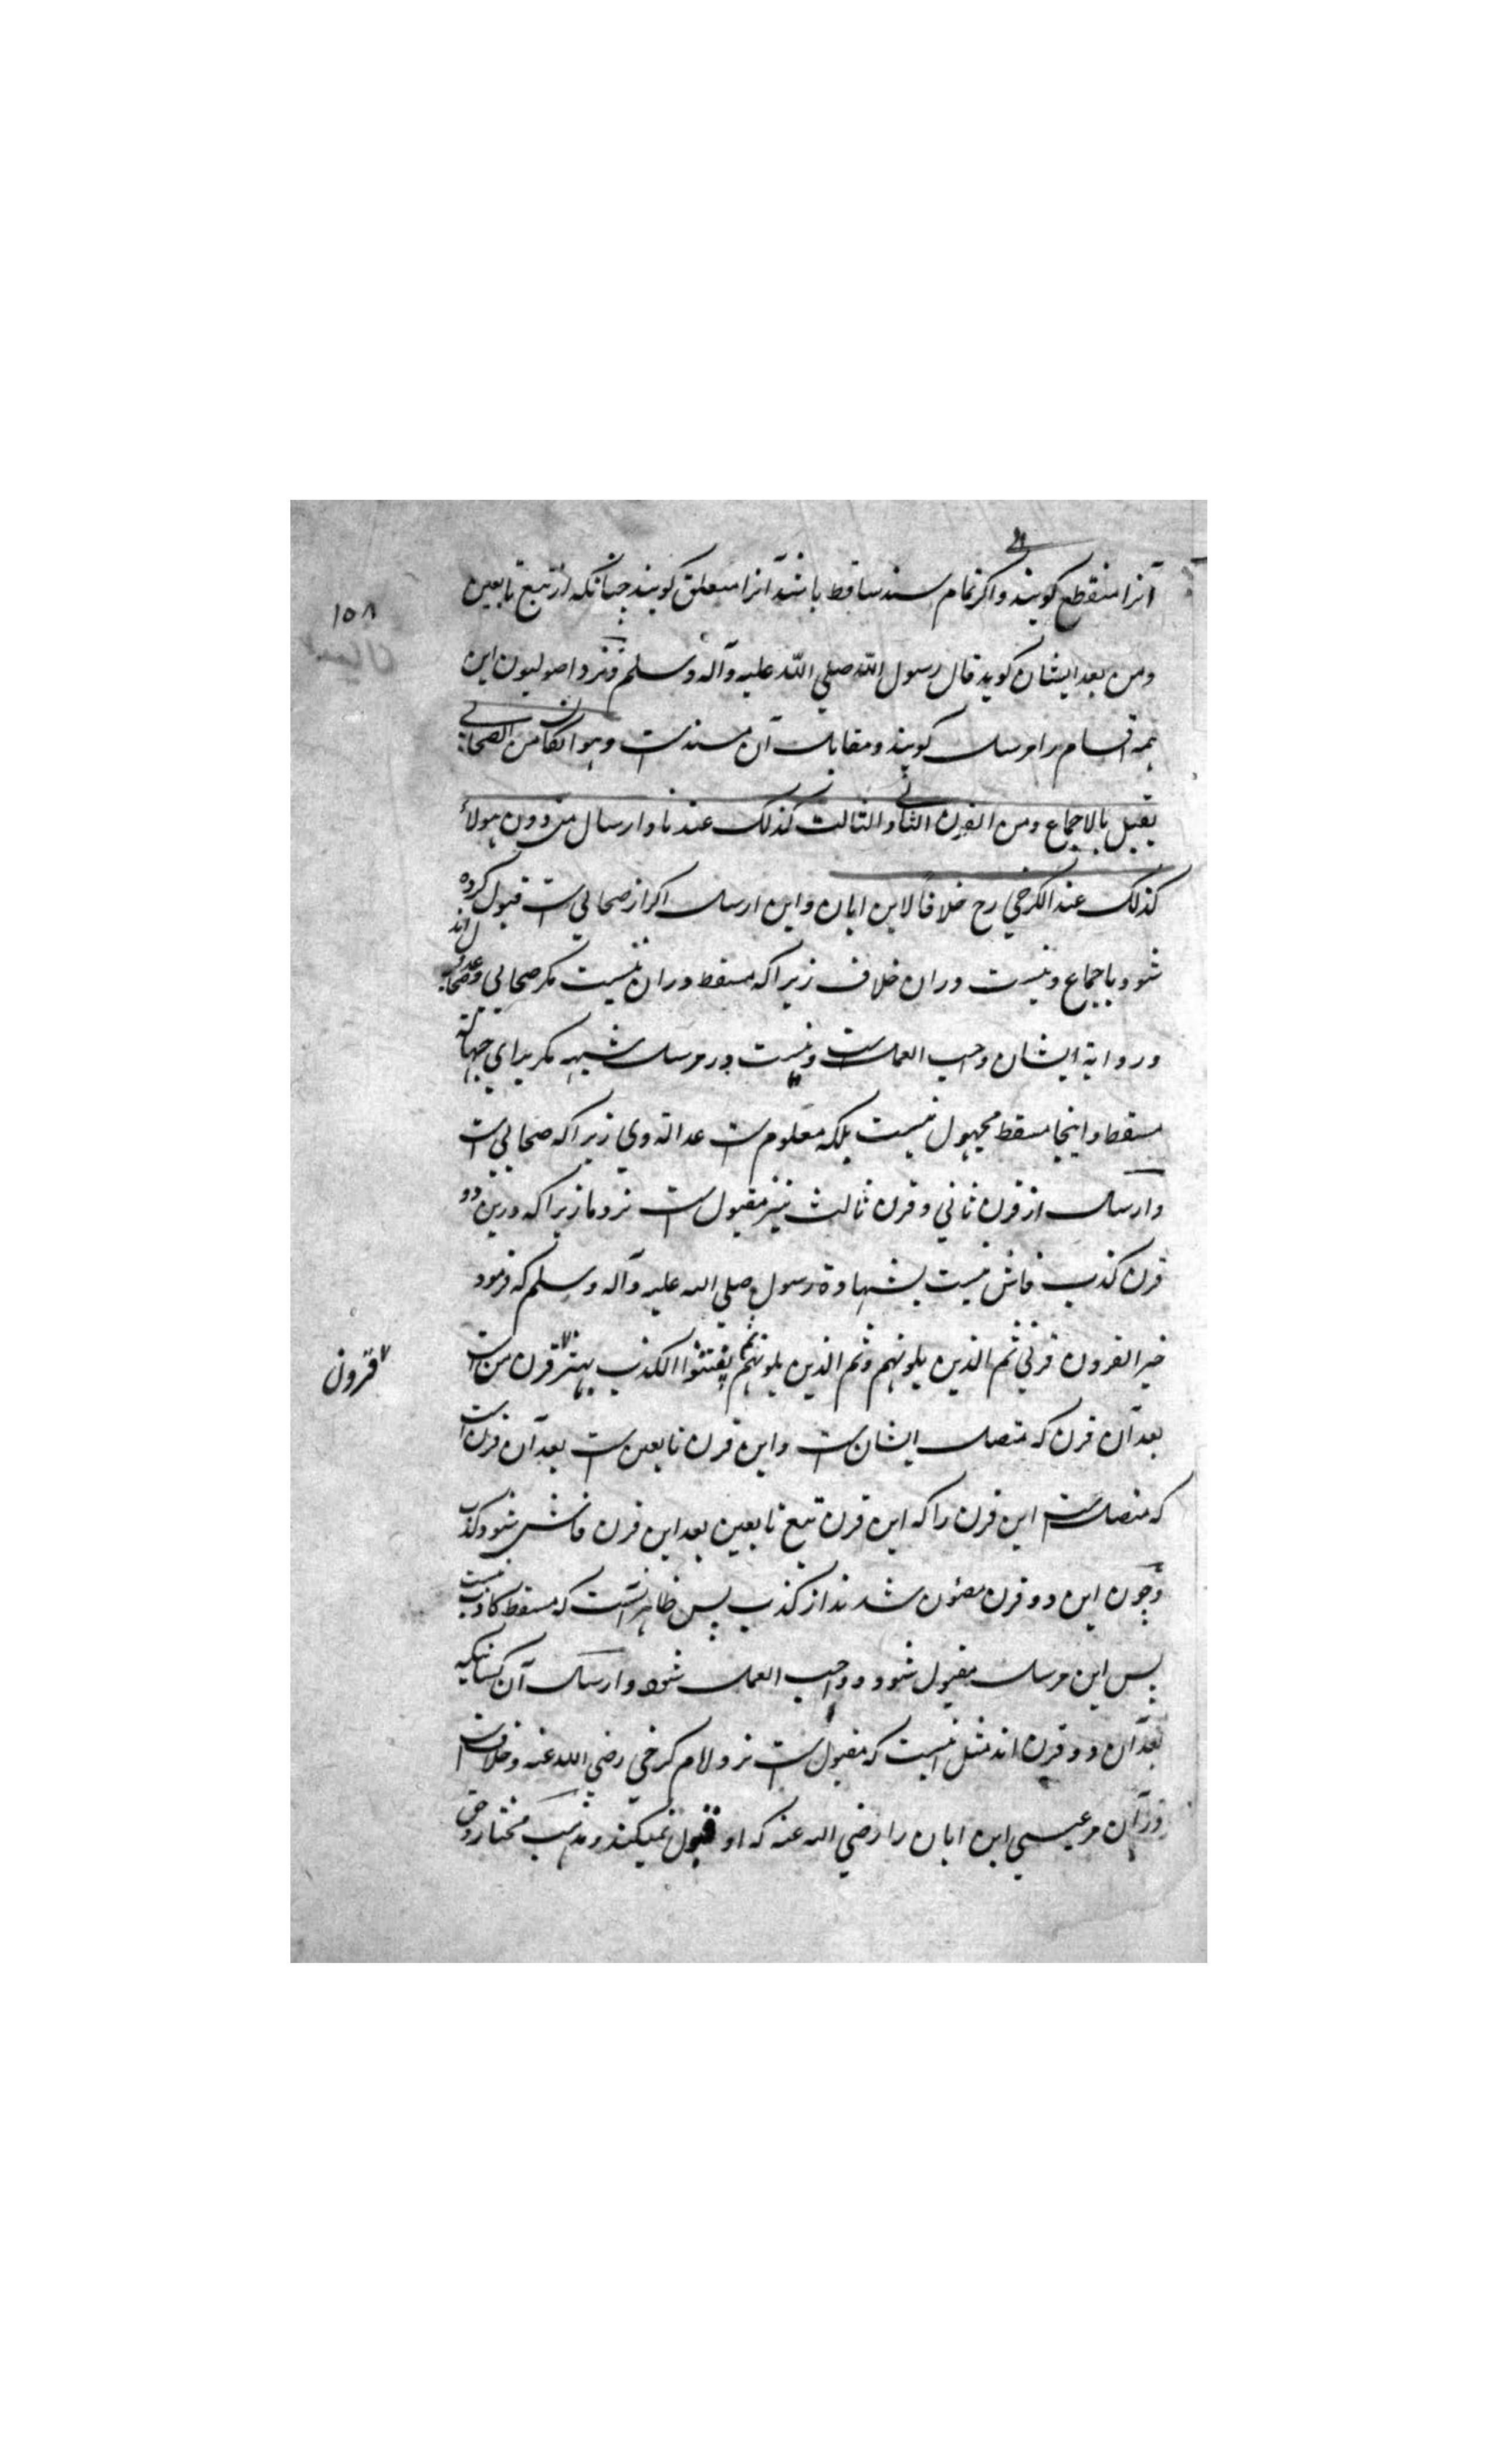 آنرا منقطع کویند و اکر تمام سند ساقط باشد آنرا معلق کویند چنانکه از تبع تابعین
۱۵۸
ومن بعد ایشان کوید قال رسول الله صلی الله علیه وآله وسلم ونزد اصولیون این
همه اقسام را مرسل کویند ومقابل آن مسند است وهو ان کان من الصحابی
یقبل بالاجماع ومن القرن الثانی والثالث کذلک عندنا وارسال من دون هولاء
کذلک عند الکرخی رح خلافاً لابن ابان واین ارسال اکر از صحابی است قبول کرده
شود باجماع ونیست دران خلاف زیرا که مسقط دران نیست مکر صحابی
وروایة ایشان واجب العمل است ونیست در مرسل شبهه مکر برای جهالة
مسقط واینجا مسقط مجهول نیست بلکه معلوم است عدالة وی زیرا که صحابی است
وارسال از قرن ثانی وقرن ثالث نیز مقبول است نزد ما زیرا که درین دو
قرن کذب فاش نیست بشهادة رسول صلی الله علیه وآله وسلم که فرمود
خیر القرون قرنی ثم الذین یلونهم وثم الذین یلونهم ثم یفشوا الکذب بهتر قرن من است
قرون
بعد آن قرن که متصل ایشان است واین قرن تابعین است بعد آن قرن است
که متصل است این قرن را که این قرن تبع تابعین بعد این قرن فاش شود کذب
وچون این دو قرن مصئون شدند از کذب پس ظاهر آنست که مسقط کاذب نیست
پس این مرسل مقبول شود و واجب العمل شود وارسال آن کسانیکه
بعد آن دو قرن اند مثل است که مقبول است نزد امام کرخی رضی الله عنه وخلاف است
در آن مر عیسی ابن ابان را رضی الله عنه که او قبول نمیکند ومذهب مختار